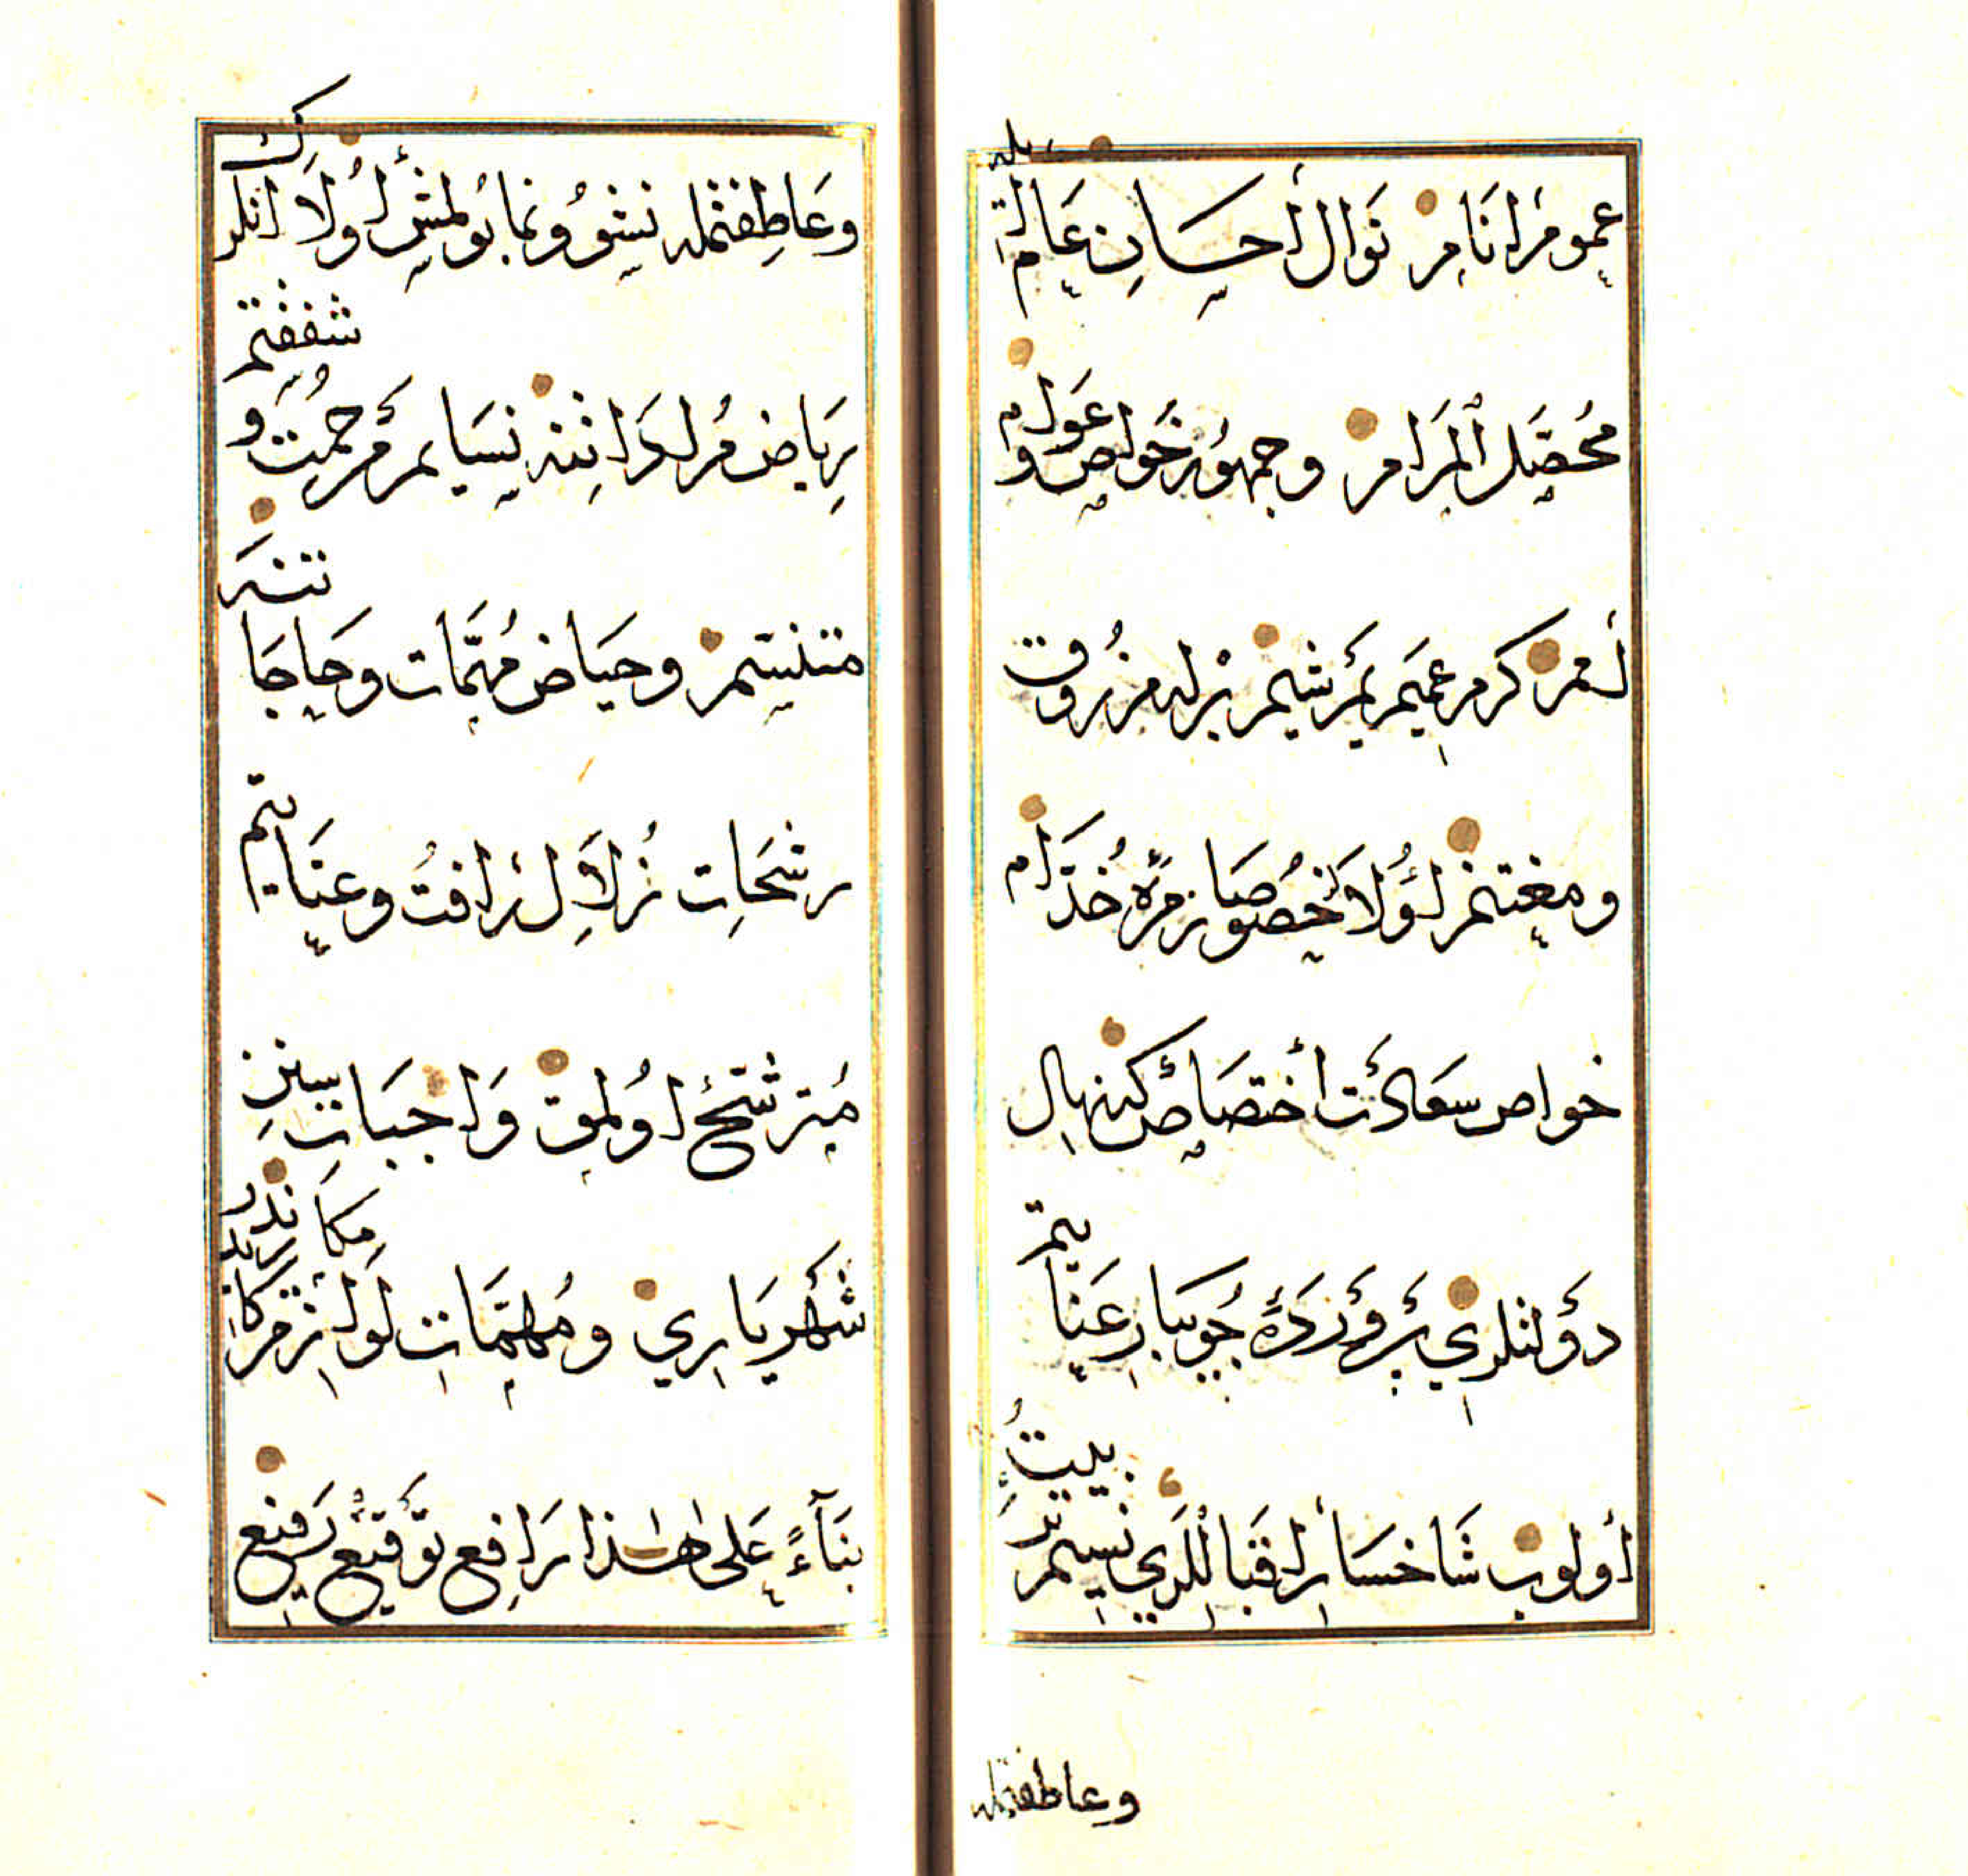 عموم انام نوال احسان عالم يله
محصل المرام وجمهور خواص و عوام
كرم عميم شيم مرزوق
ومغتنم اولا خصوصا زمرۀ خدام
خواص سعادت اختصاص كه نهال
دولتلری پروردۀ جويبار عنايتم
اولوب شاخسار اقباللری نسيم تربيت
وعاطفتمله
وعاطفتمله نشو ونما بولمش اولا انلرك
رياض مراداتنه نسايم مرحمت و شفقتم
متنسم وحياض مهمات وحاجاتنه
رشحات زلال رافت وعنايتم
مترشح اولمق واجبات سنن
شهرياری ومهمات لوازم مكاندر
بناءً على هذا رافع توقيع رفيع